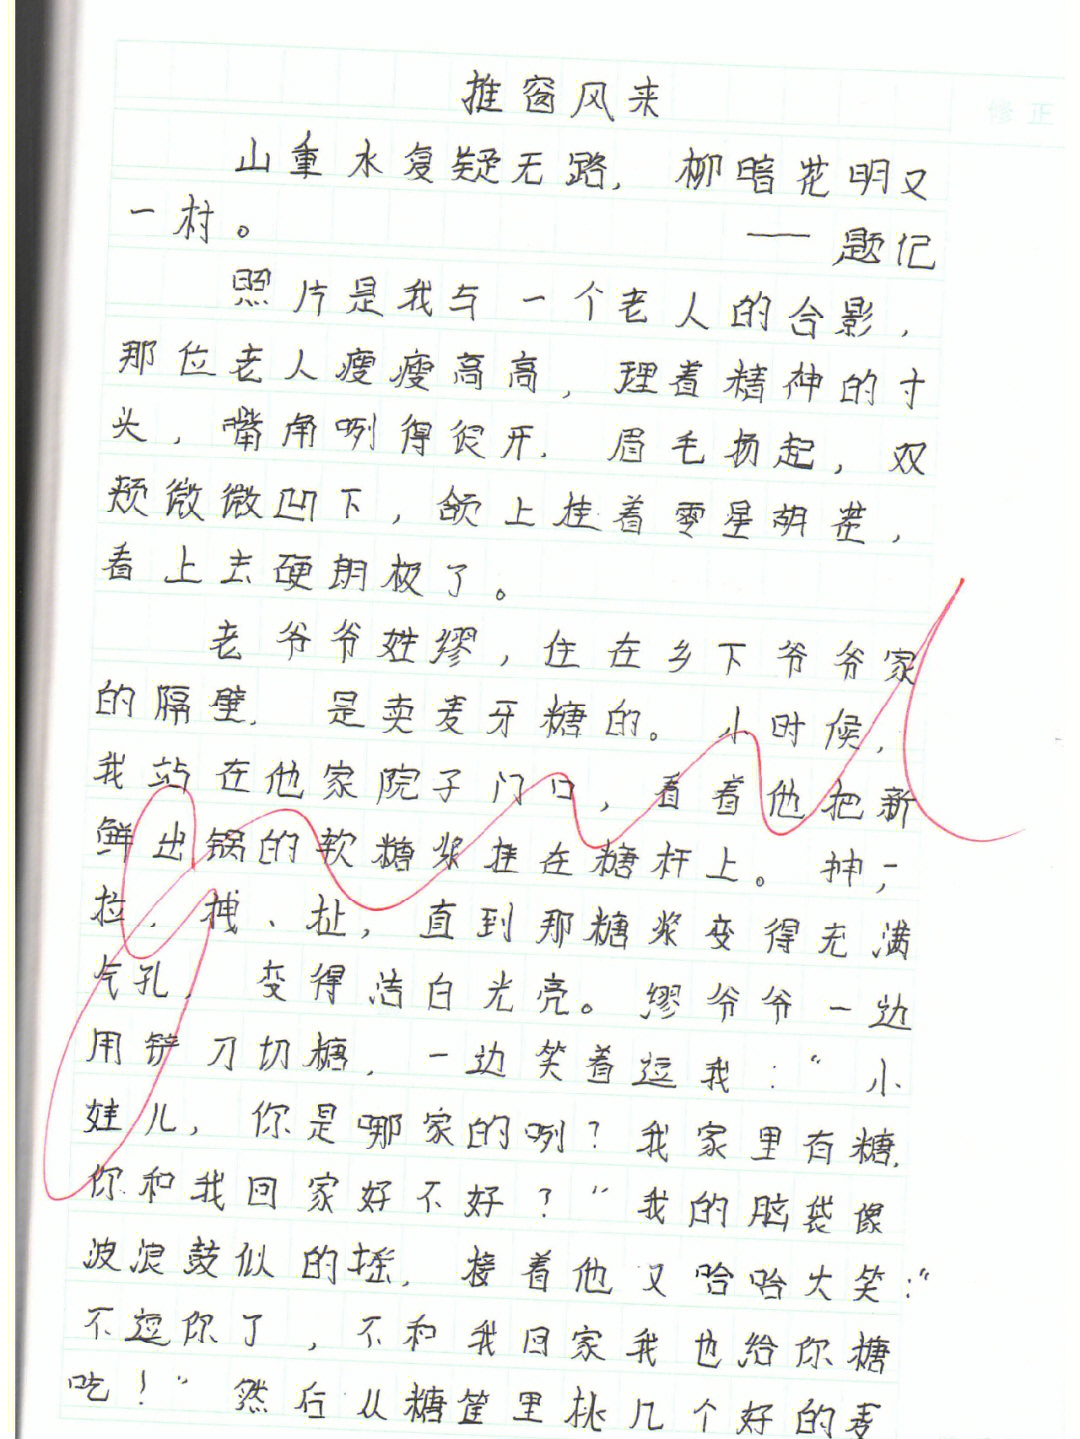 推窗风来
修正
山重水复疑无路，柳暗花明又
一村。 ——题记
照片是我与一个老人的合影，
那位老人瘦瘦高高，理着精神的寸
头，嘴角咧得很开，眉毛扬起，双
颊微微凹下，颌上挂着零星胡茬，
看上去硬朗极了。
老爷爷姓缪，住在乡下爷爷家
的隔壁，是卖麦牙糖的。小时候，
我站在他家院子门口，看着他把新
鲜出锅的软糖浆挂在糖杆上。抻，
拉，拽、扯，直到那糖浆变得充满
气孔，变得洁白光亮。缪爷爷一边
用铲刀切糖，一边笑着逗我：“小
娃儿，你是哪家的咧？我家里有糖，
你和我回家好不好？”我的脑袋像
波浪鼓似的摇，接着他又哈哈大笑：“
不逗你了，不和我回家我也给你糖
吃！”然后从糖筐里挑几个好的麦
good